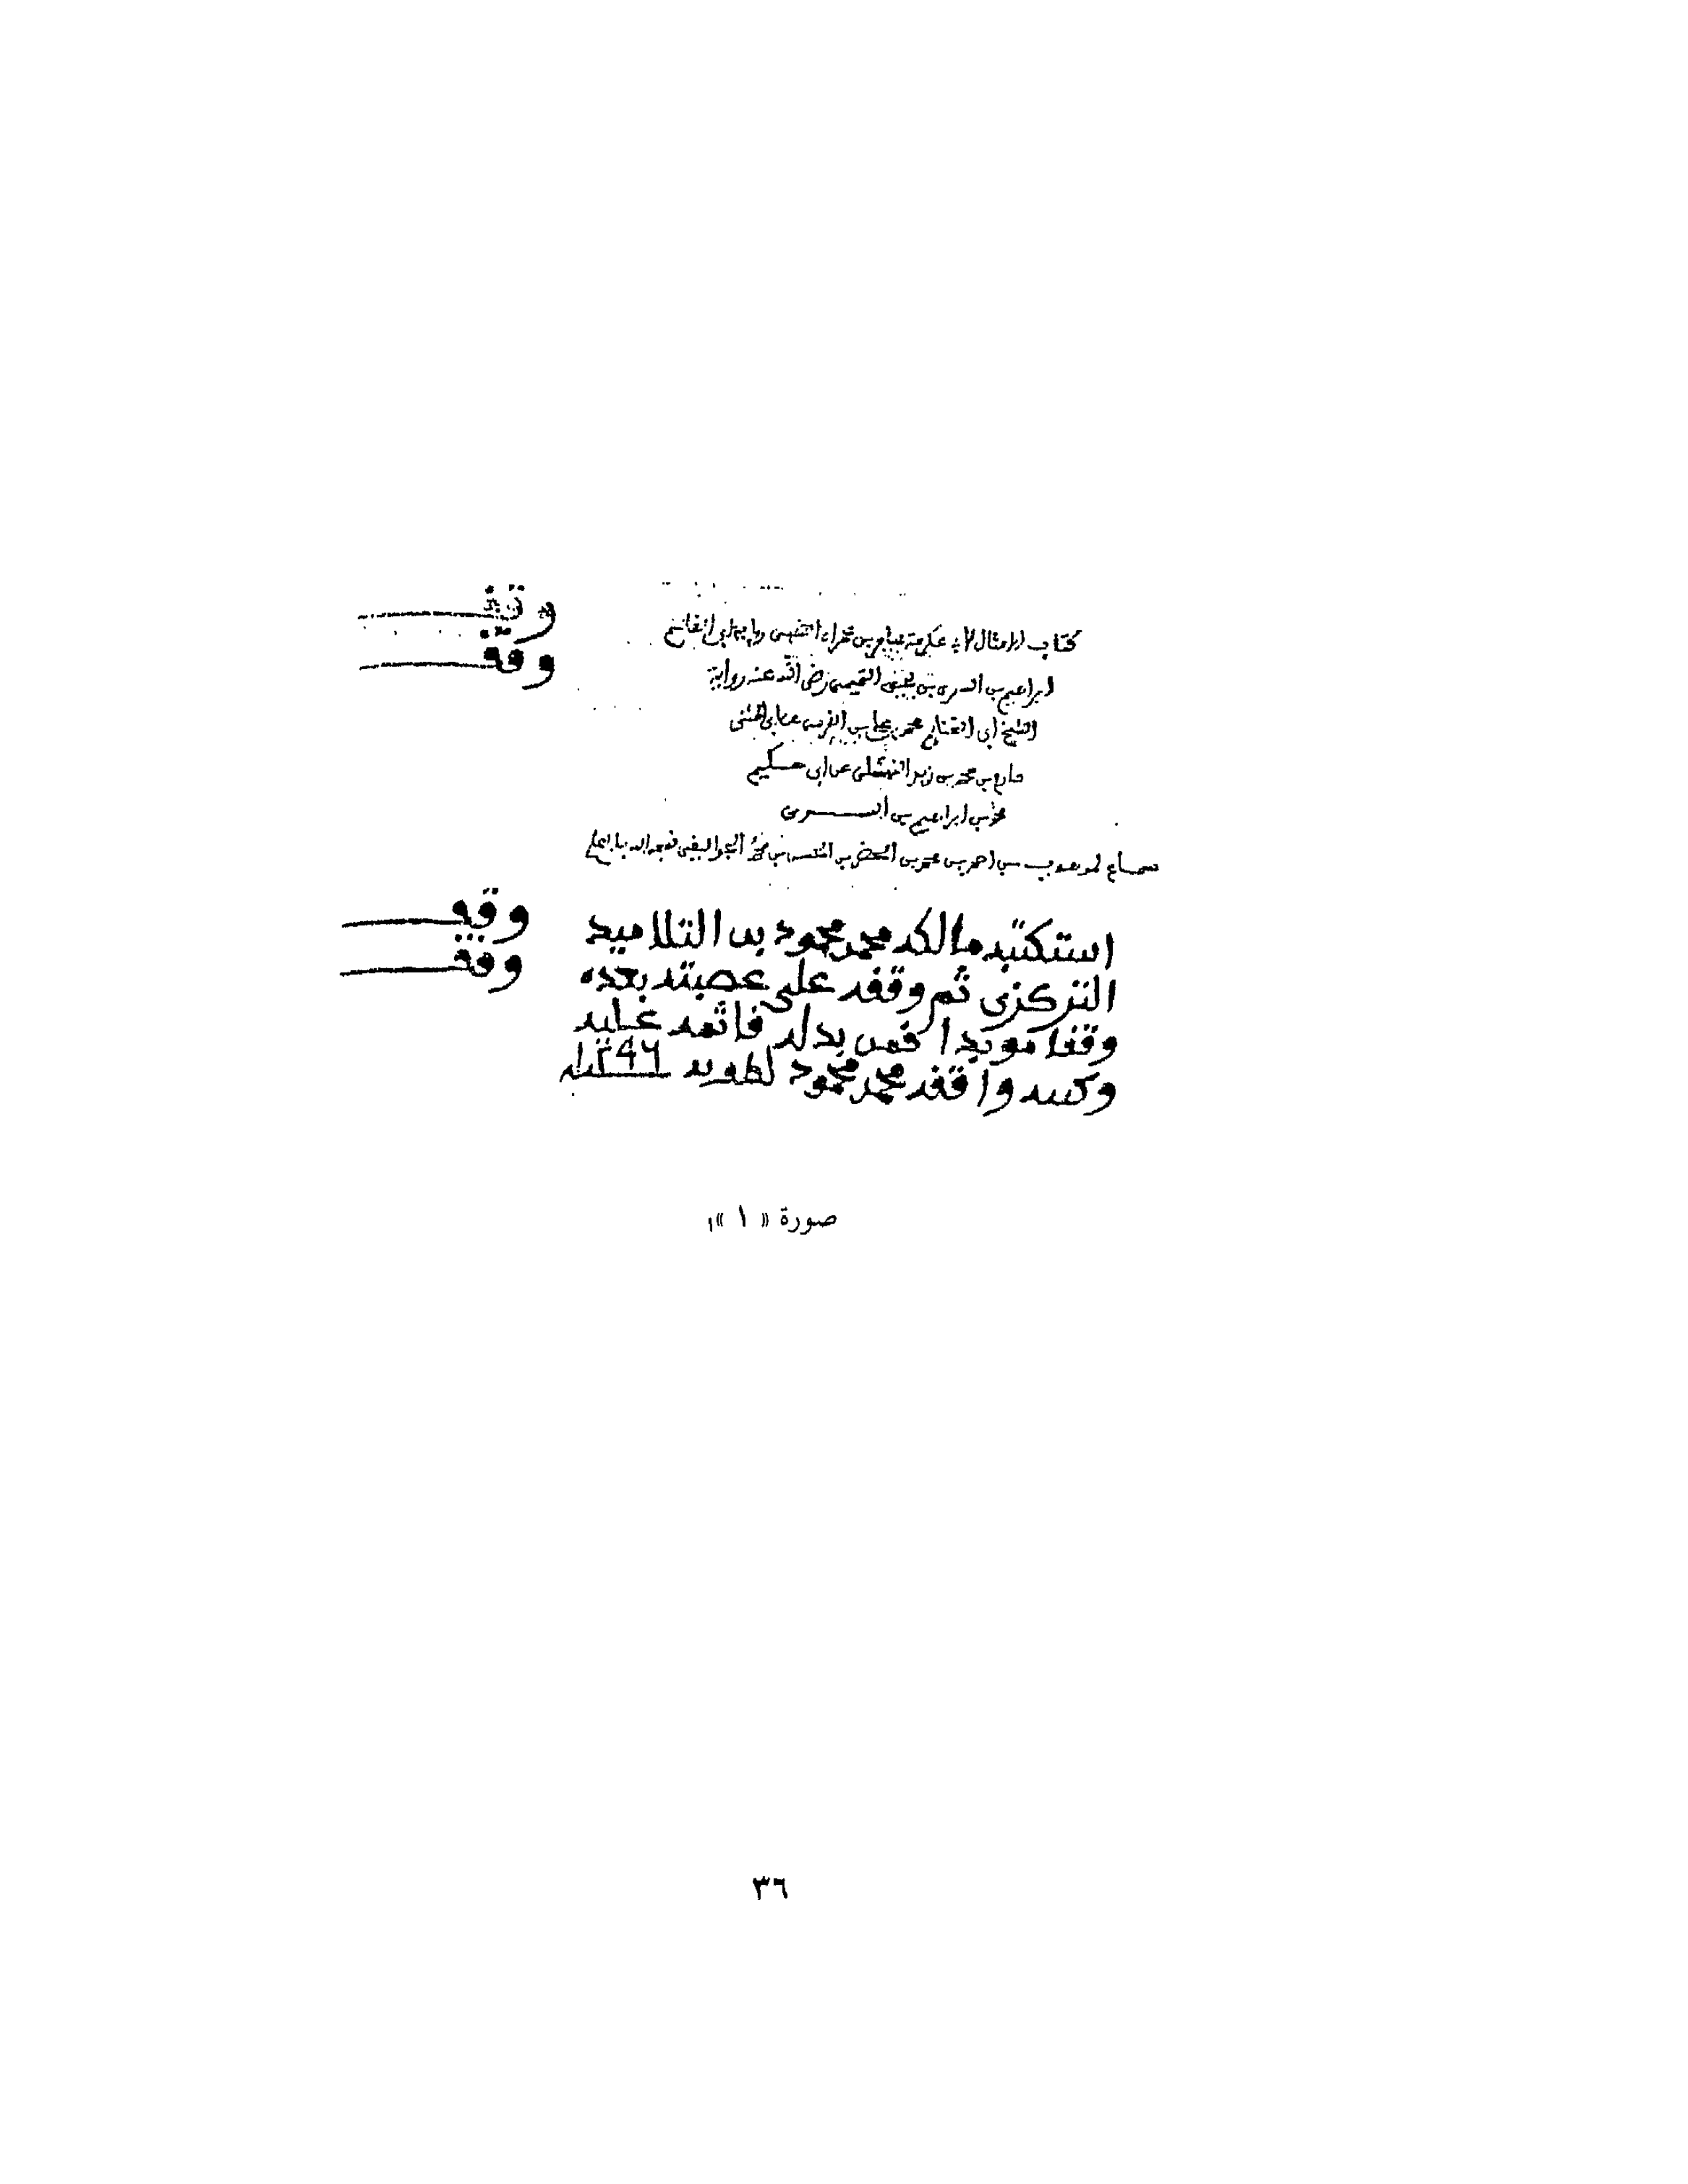 كتاب الامثال لابي عكرمة عامر بن عمران الضبي رواية ابي القاسم
ابراهيم بن السرى بن يحيى التميمى رضى الله عنه رواية
الشيخ ابى الغنائم محمد بن على بن النرسى عن ابى المثنى
دارم بن محمد بن زيد النهشلى عن ابى حكيم
محمد بن ابراهيم بن السرى
سماع لموهوب بن احمد بن محمد بن الخضر بن الحسن بن محمد الجواليقى نفعه الله بالعلم
وقف
وقف
استكتبه مالكه محمد محمود بن التلاميد
التركزى ثم وقفه على عصبته بعده
وقفا موبدا فمن بدله فاثمه عليه
وكتبه واقفه محمد محمود لطف به سنة ١٢٩٦
وقف
وقف
صورة « ١ »
٣٦